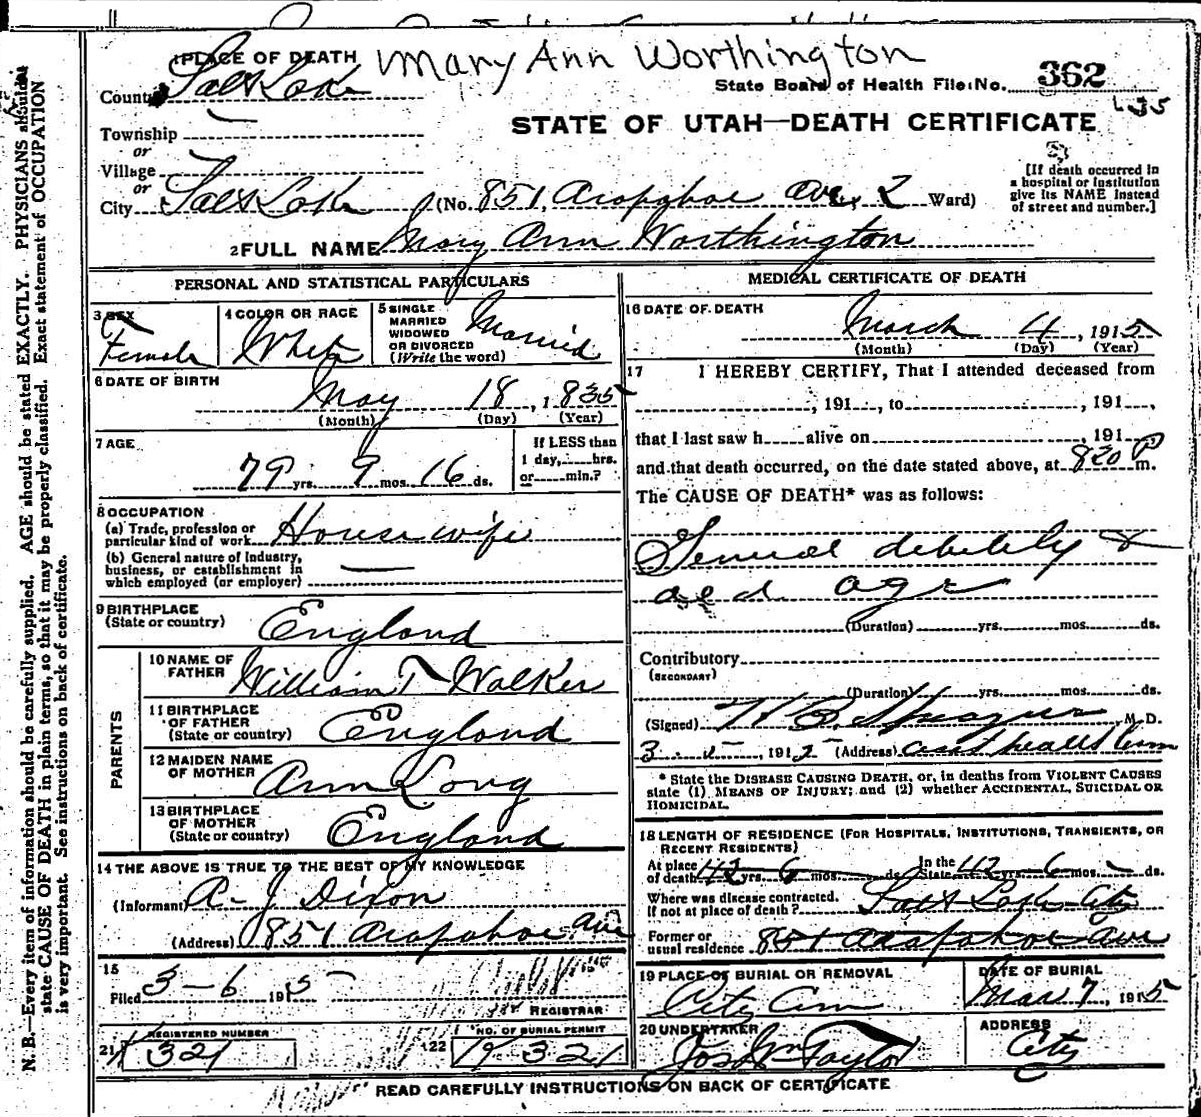 1 PLACE OF DEATH Mary Ann Worthington
County Salt Lake State Board of Health File No. 362
Township
or STATE OF UTAH—DEATH CERTIFICATE
Village
or
City Salt Lake (No. 851, Arapahoe Ave, 2 Ward)
[If death occurred in
a hospital or institution
give its NAME instead
of street and number.]
2 FULL NAME Mary Ann Worthington
PERSONAL AND STATISTICAL PARTICULARS
3 SEX
Female
4 COLOR OR RACE
White
5 SINGLE
MARRIED
WIDOWED
OR DIVORCED
(Write the word)
Married
6 DATE OF BIRTH
May 18, 1835
(Month) (Day) (Year)
7 AGE
79 yrs. 9 mos. 16 ds.
If LESS than
1 day, hrs.
or min.?
8 OCCUPATION
(a) Trade, profession or
particular kind of work House wife
(b) General nature of industry,
business, or establishment in
which employed (or employer)
9 BIRTHPLACE
(State or country) England
PARENTS
10 NAME OF
FATHER William T Walker
11 BIRTHPLACE
OF FATHER
(State or country) England
12 MAIDEN NAME
OF MOTHER Ann Long
13 BIRTHPLACE
OF MOTHER
(State or country) England
14 THE ABOVE IS TRUE TO THE BEST OF MY KNOWLEDGE
(Informant) A. J Dixon
(Address) 851 Arapahoe Ave
15
Filed 3-6 1915
REGISTRAR
REGISTERED NUMBER
21 321
NO. OF BURIAL PERMIT
22 321
MEDICAL CERTIFICATE OF DEATH
16 DATE OF DEATH
March 4, 1915
(Month) (Day) (Year)
17 I HEREBY CERTIFY, That I attended deceased from
, 191 , to , 191 ,
that I last saw h alive on , 191
and that death occurred, on the date stated above, at 820 P m.
The CAUSE OF DEATH* was as follows:
General debility &
old age
(Duration) yrs. mos. ds.
Contributory
(SECONDARY)
(Duration) yrs. mos. ds.
(Signed) M. D.
3 - 5 -, 1915 (Address) asst health Com
* State the DISEASE CAUSING DEATH, or, in deaths from VIOLENT CAUSES
state (1) MEANS OF INJURY; and (2) whether ACCIDENTAL, SUICIDAL OR
HOMICIDAL.
18 LENGTH OF RESIDENCE (FOR HOSPITALS, INSTITUTIONS, TRANSIENTS, OR
RECENT RESIDENTS)
At place
of death 42 yrs. 6 mos. ds.
In the
State 42 yrs. 6 mos. - ds.
Where was disease contracted.
If not at place of death? Salt Lake City
Former or
usual residence 851 Arapahoe Ave
19 PLACE OF BURIAL OR REMOVAL
City Cem
DATE OF BURIAL
Mar 7, 1915
20 UNDERTAKER
Jos Wm Taylor
ADDRESS
City
READ CAREFULLY INSTRUCTIONS ON BACK OF CERTIFICATE
N. B.—Every item of information should be carefully supplied. AGE should be stated EXACTLY. PHYSICIANS should
state CAUSE OF DEATH in plain terms, so that it may be properly classified. Exact statement of OCCUPATION
is very important. See instructions on back of certificate.